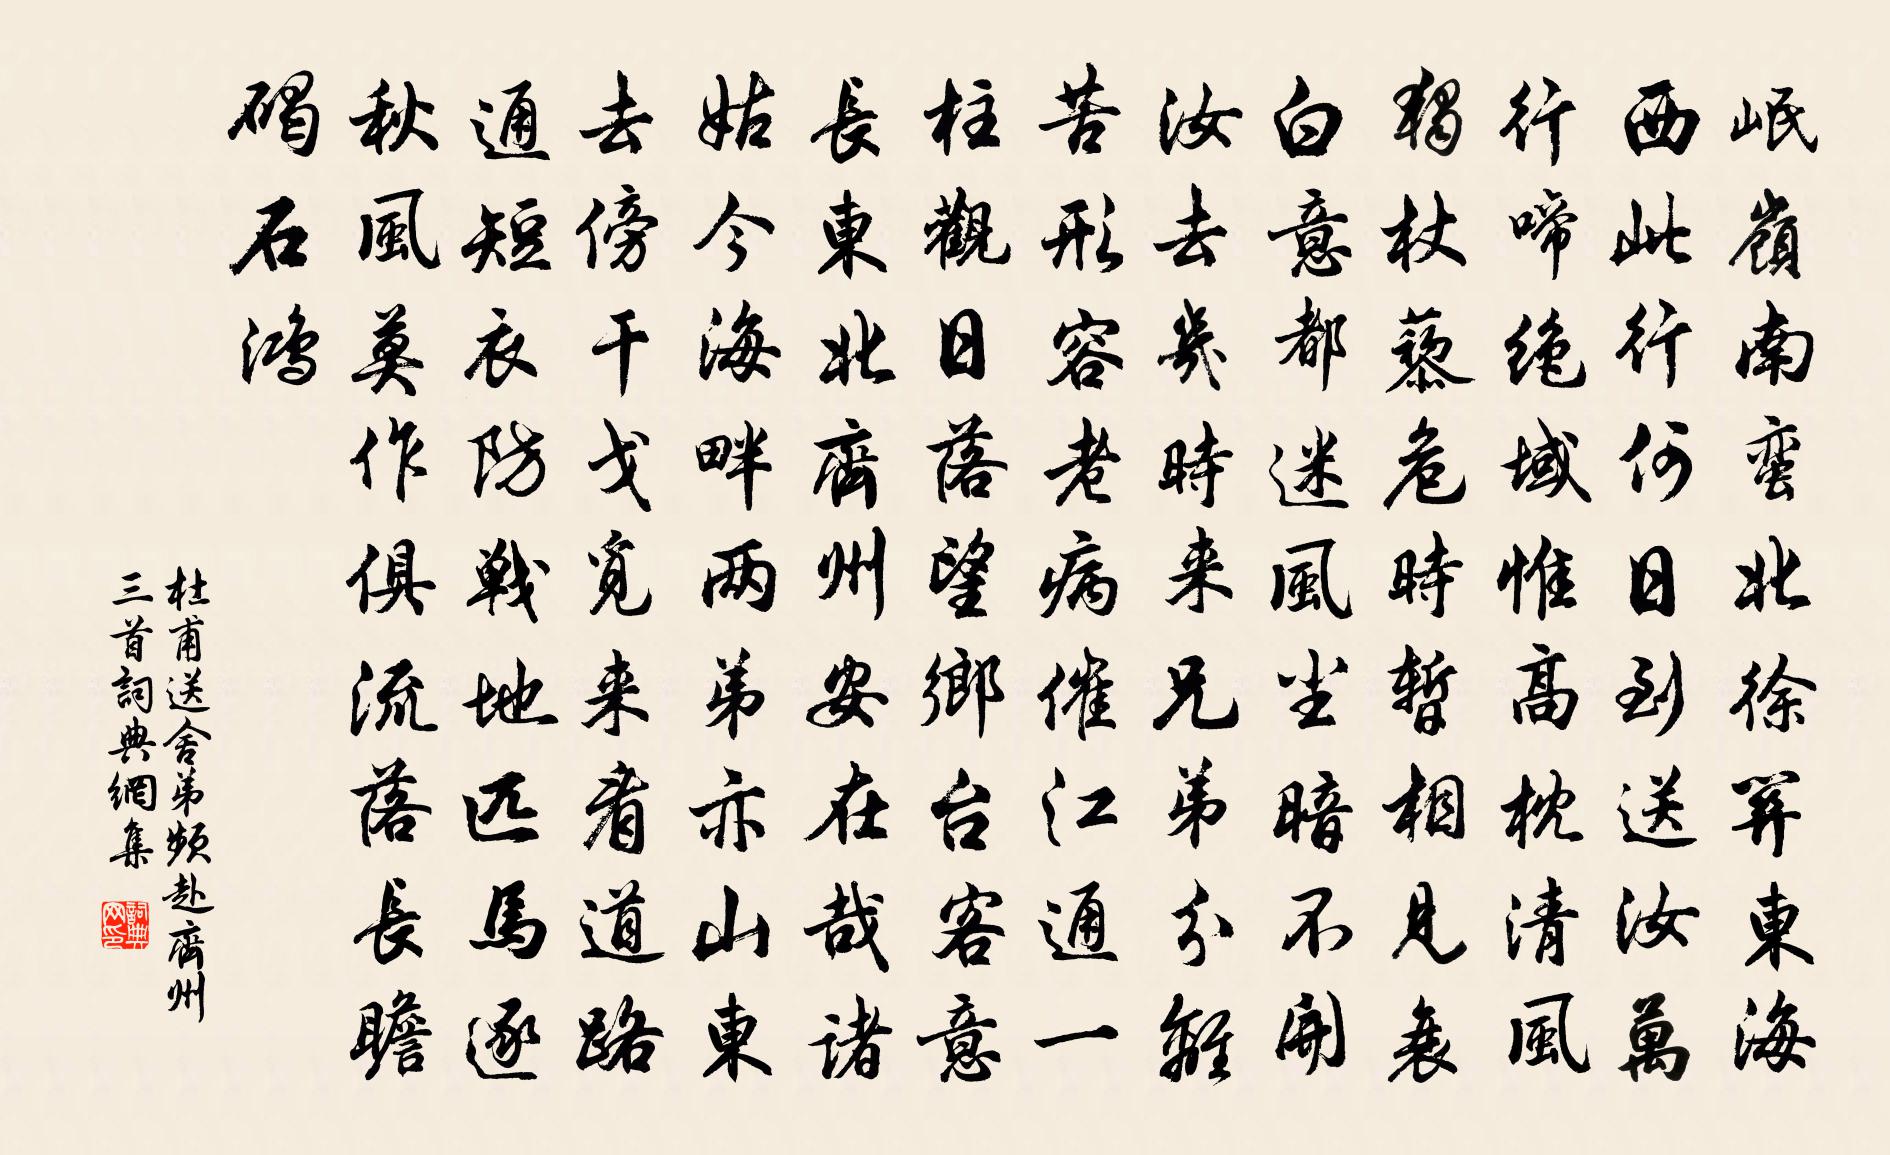 岷嶺南蛮北徐關東海
西此行何日到送汝萬
行啼绝域惟高枕清風
獨杖藜危時暫相見衰
白意都迷風尘暗不開
汝去幾時来兄弟分離
苦形容老病催江通一
柱觀日落望鄉台客意
長東北齊州安在哉諸
姑今海畔两弟亦山東
去傍干戈覓来看道路
通短衣防戰地匹馬逐
秋風莫作俱流落長瞻
碣石鴻
杜甫送舍弟頻赴齊州
三首詞典網集
詞典网印